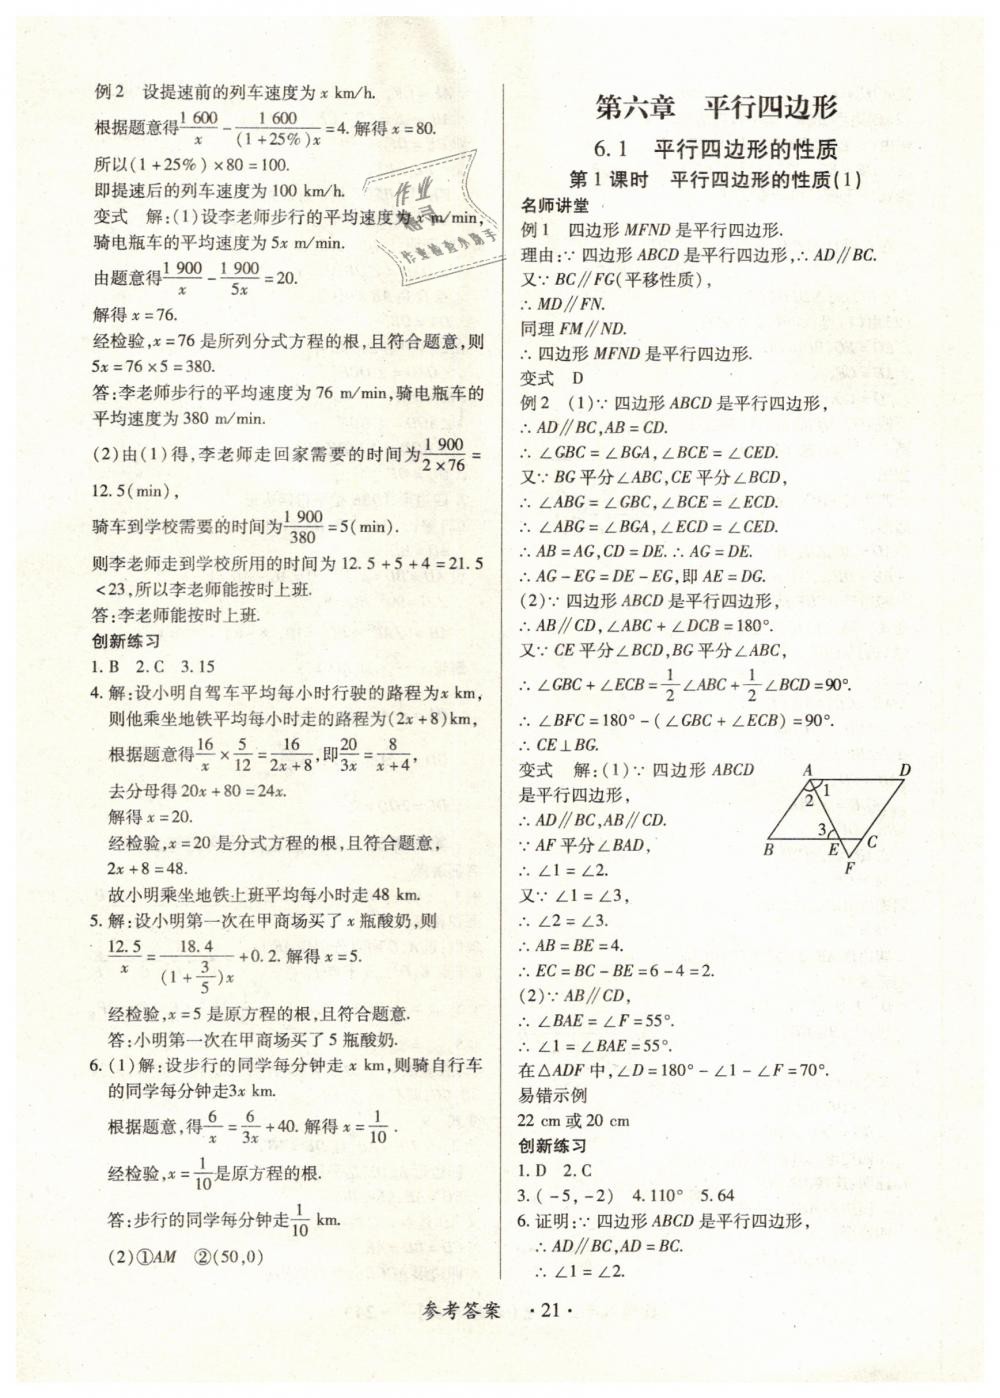 例2　设提速前的列车速度为 x km/h.
根据题意得1 600/x − 1 600/(1+25%)x =4. 解得 x=80.
所以(1+25%)×80=100.
即提速后的列车速度为 100 km/h.
变式　解:(1)设李老师步行的平均速度为 x m/min,
骑电瓶车的平均速度为 5x m/min.
由题意得1 900/x − 1 900/5x =20.
解得 x=76.
经检验,x=76 是所列分式方程的根,且符合题意,则
5x=76×5=380.
答:李老师步行的平均速度为 76 m/min,骑电瓶车的
平均速度为 380 m/min.
(2)由(1)得,李老师走回家需要的时间为1 900/2×76 =
12.5(min),
骑车到学校需要的时间为1 900/380=5(min).
则李老师走到学校所用的时间为 12.5+5+4=21.5
<23,所以李老师能按时上班.
答:李老师能按时上班.
创新练习
1. B　2. C　3. 15
4. 解:设小明自驾车平均每小时行驶的路程为x km,
则他乘坐地铁平均每小时走的路程为(2x+8)km,
根据题意得16/x × 5/12 = 16/2x+8,即20/3x = 8/x+4,
去分母得 20x+80=24x.
解得 x=20.
经检验,x=20 是分式方程的根,且符合题意,
2x+8=48.
故小明乘坐地铁上班平均每小时走 48 km.
5. 解:设小明第一次在甲商场买了 x 瓶酸奶,则
12.5/x = 18.4/(1+3/5)x +0.2. 解得 x=5.
经检验,x=5 是原方程的根,且符合题意.
答:小明第一次在甲商场买了 5 瓶酸奶.
6. (1)解:设步行的同学每分钟走 x km,则骑自行车
的同学每分钟走3x km.
根据题意,得6/x = 6/3x +40. 解得 x=1/10.
经检验,x=1/10是原方程的根.
答:步行的同学每分钟走1/10 km.
(2)①AM　②(50,0)
作业
作业检查小助手
第六章　平行四边形
6.1　平行四边形的性质
第1课时　平行四边形的性质(1)
名师讲堂
例1　四边形 MFND 是平行四边形.
理由:∵ 四边形 ABCD 是平行四边形,∴ AD∥BC.
又∵ BC∥FG(平移性质),
∴ MD∥FN.
同理 FM∥ND.
∴ 四边形 MFND 是平行四边形.
变式　D
例2　(1)∵ 四边形 ABCD 是平行四边形,
∴ AD∥BC,AB=CD.
∴ ∠GBC=∠BGA,∠BCE=∠CED.
又∵ BG 平分∠ABC,CE 平分∠BCD,
∴ ∠ABG=∠GBC,∠BCE=∠ECD.
∴ ∠ABG=∠BGA,∠ECD=∠CED.
∴ AB=AG,CD=DE. ∴ AG=DE.
∴ AG−EG=DE−EG,即 AE=DG.
(2)∵ 四边形 ABCD 是平行四边形,
∴ AB∥CD,∠ABC+∠DCB=180°.
又∵ CE 平分∠BCD,BG 平分∠ABC,
∴ ∠GBC+∠ECB=1/2∠ABC+1/2∠BCD=90°.
∴ ∠BFC=180°−(∠GBC+∠ECB)=90°.
∴ CE⊥BG.
变式　解:(1)∵ 四边形 ABCD
是平行四边形,
∴ AD∥BC,AB∥CD.
∵ AF 平分∠BAD,
∴ ∠1=∠2.
又∵ ∠1=∠3,
∴ ∠2=∠3.
∴ AB=BE=4.
∴ EC=BC−BE=6−4=2.
(2)∵ AB∥CD,
∴ ∠BAE=∠F=55°.
∴ ∠1=∠BAE=55°.
在△ADF 中,∠D=180°−∠1−∠F=70°.
A D
1
2
3
B E C
F
易错示例
22 cm 或 20 cm
创新练习
1. D　2. C
3. (−5,−2)　4. 110°　5. 64
6. 证明:∵ 四边形 ABCD 是平行四边形,
∴ AD∥BC,AD=BC.
∴ ∠1=∠2.
参考答案　·21·